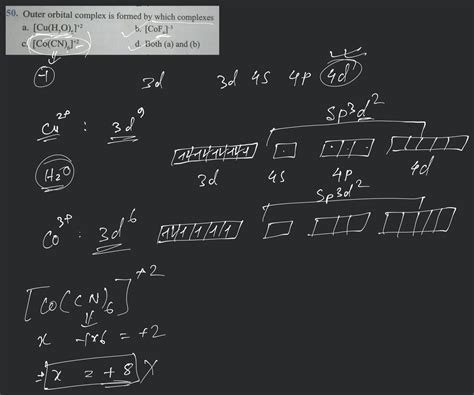 50. Outer orbital complex is formed by which complexes
a. [Cu(H₂O)₆]⁺² b. [CoF₆]⁻³
c. [Co(CN)₆]⁺² d. Both (a) and (b)
-1 3d 3d 4S 4P 4d
Sp³d²
Cu²⁺ : 3d⁹
3d 4S 4P 4d
H₂O
Sp³d²
Co³⁺ : 3d⁶
[Co(CN)₆]⁺²
x -1x6 = +2
⇒ x = +8 X